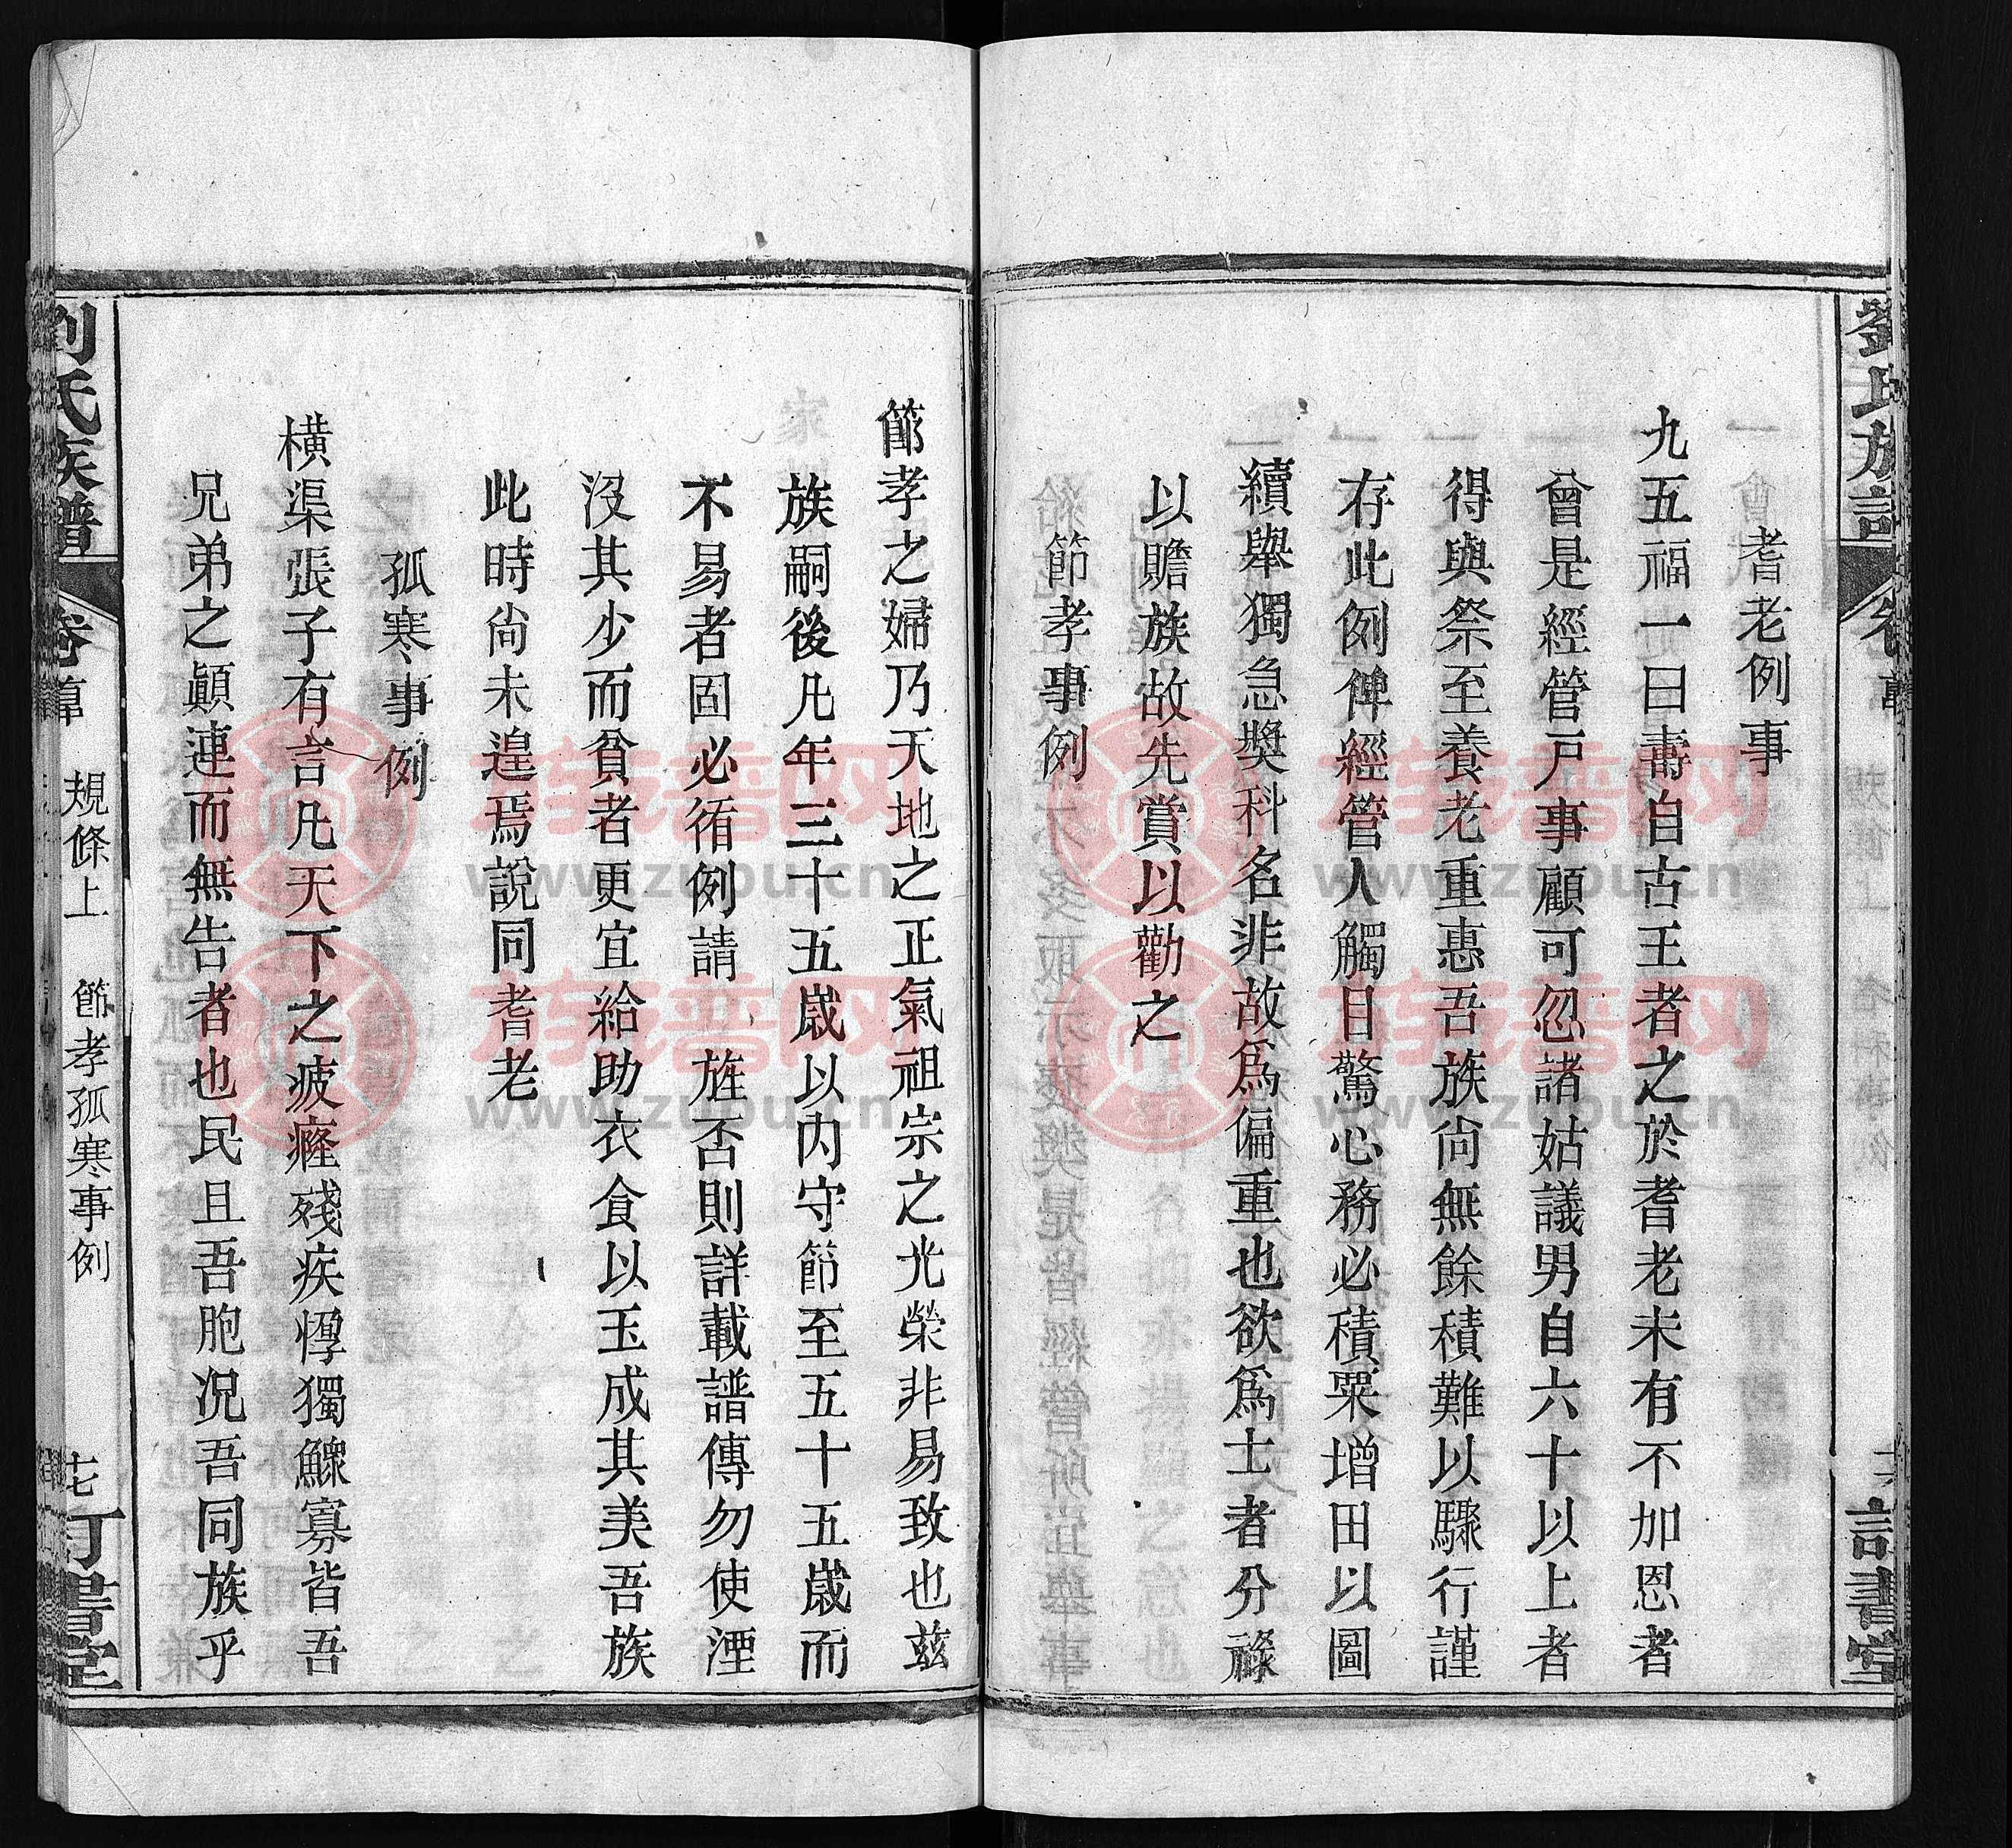 耆老例事
九五福一曰壽自古王者之於耆老未有不加恩者
曾是經管戶事顧可忽諸姑議男自六十以上者
得與祭至養老重惠吾族尙無餘積難以驟行謹
存此例俾經管人觸目驚心務必積粟增田以圖
續舉獨急獎科名非故爲偏重也欲爲士者分祿
以贍族故先賞以勸之
節孝事例
節孝之婦乃天地之正氣祖宗之光榮非易致也茲
族嗣後凡年三十五歲以內守節至五十五歲而
不易者固必循例請 旌否則詳載譜傳勿使湮
沒其少而貧者更宜給助衣食以玉成其美吾族
此時尙未遑焉說同耆老
孤寒事例
橫渠張子有言凡天下之疲癃殘疾惸獨鰥寡皆吾
兄弟之顚連而無告者也民且吾胞况吾同族乎
劉氏族譜
卷首
規條上 節孝孤寒事例
十七
訂書堂
族譜网
www.zupu.cn
族譜网
www.zupu.cn
族譜网
www.zupu.cn
族譜网
www.zupu.cn